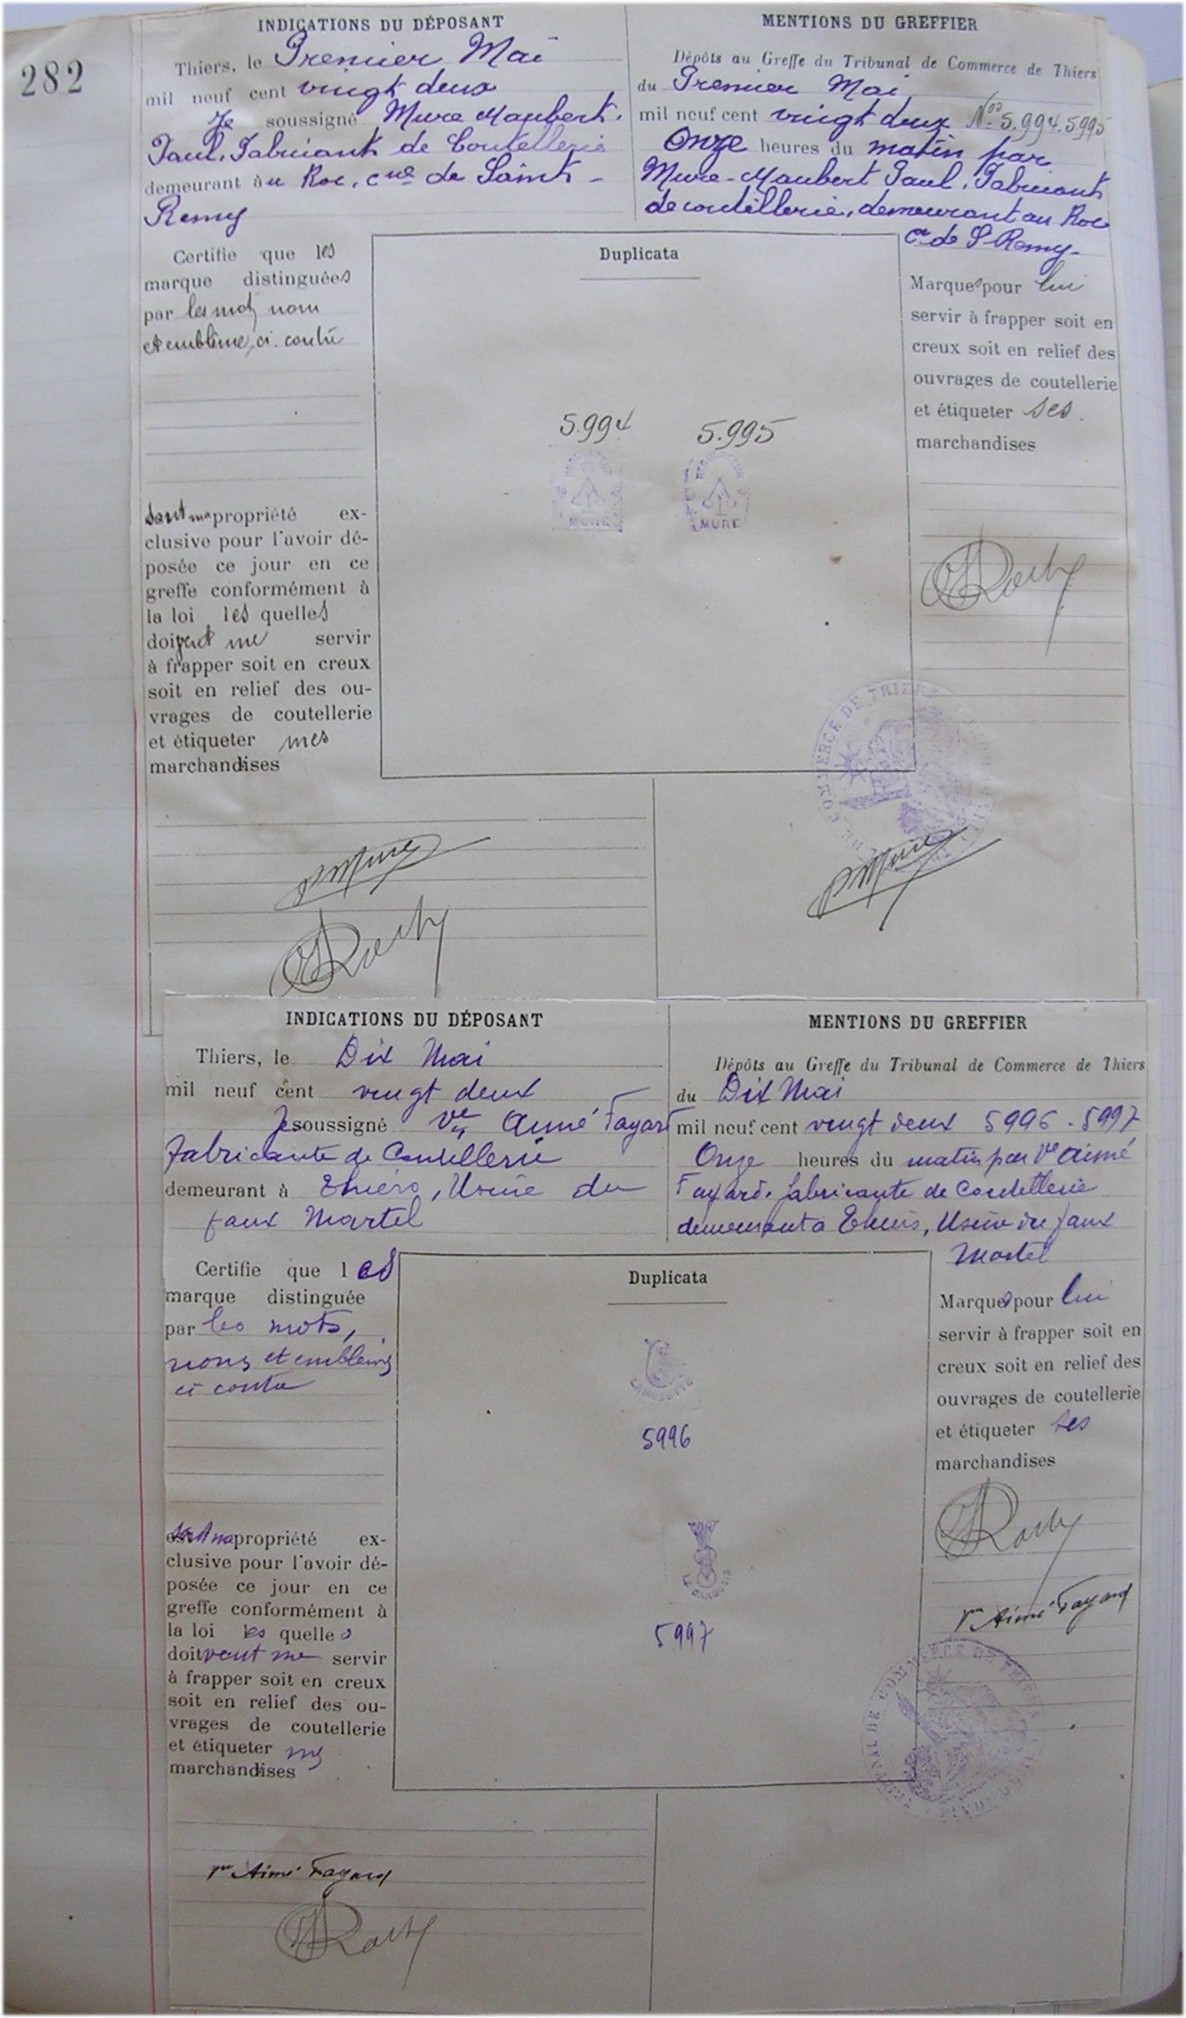 282
INDICATIONS DU DÉPOSANT
Thiers, le Premier Mai
mil neuf cent vingt deux
Je soussigné Mure Maubert.
Paul, Fabricant de Coutellerie
demeurant au Roc, cne de Saint-
Remy
Certifie que les
marque distinguées
par les mots, nom
et emblême, ci-contre
sont ma propriété ex-
clusive pour l'avoir dé-
posée ce jour en ce
greffe conformément à
la loi les quelles
doivent me servir
à frapper soit en creux
soit en relief des ou-
vrages de coutellerie
et étiqueter mes
marchandises
PMure
MENTIONS DU GREFFIER
Dépôts au Greffe du Tribunal de Commerce de Thiers
du Premier Mai
mil neuf cent vingt deux Nos 5.994.5995
Onze heures du matin par
Mure-Maubert Paul, Fabricant
de coutellerie, demeurant au Roc
cne de St Remy-
Duplicata
5.994 5.995
MURE MURE
Marques pour lui
servir à frapper soit en
creux soit en relief des
ouvrages de coutellerie
et étiqueter ses
marchandises
PMure
INDICATIONS DU DÉPOSANT
Thiers, le Dix Mai
mil neuf cent vingt deux
Je soussigné Vve Aimé Fayard
Fabricante de Coutellerie
demeurant à Thiers, Usine du
faux Martel
Certifie que les
marque distinguée
par les mots,
noms et emblems
ci contre
sont ma propriété ex-
clusive pour l'avoir dé-
posée ce jour en ce
greffe conformément à
la loi les quelles
doitvent me servir
à frapper soit en creux
soit en relief des ou-
vrages de coutellerie
et étiqueter mes
marchandises
Vve Aimé Fayard
MENTIONS DU GREFFIER
Dépôts au Greffe du Tribunal de Commerce de Thiers
du Dix Mai
mil neuf cent vingt deux 5996-5997
Onze heures du matin par Vve Aimé
Fayard, fabricante de Coutellerie
demeurant à Thiers, Usine du faux
Martel
Duplicata
5996
5997
Marques pour lui
servir à frapper soit en
creux soit en relief des
ouvrages de coutellerie
et étiqueter ses
marchandises
Vve Aimé Fayard
TRIBUNAL DE COMMERCE DE THIERS